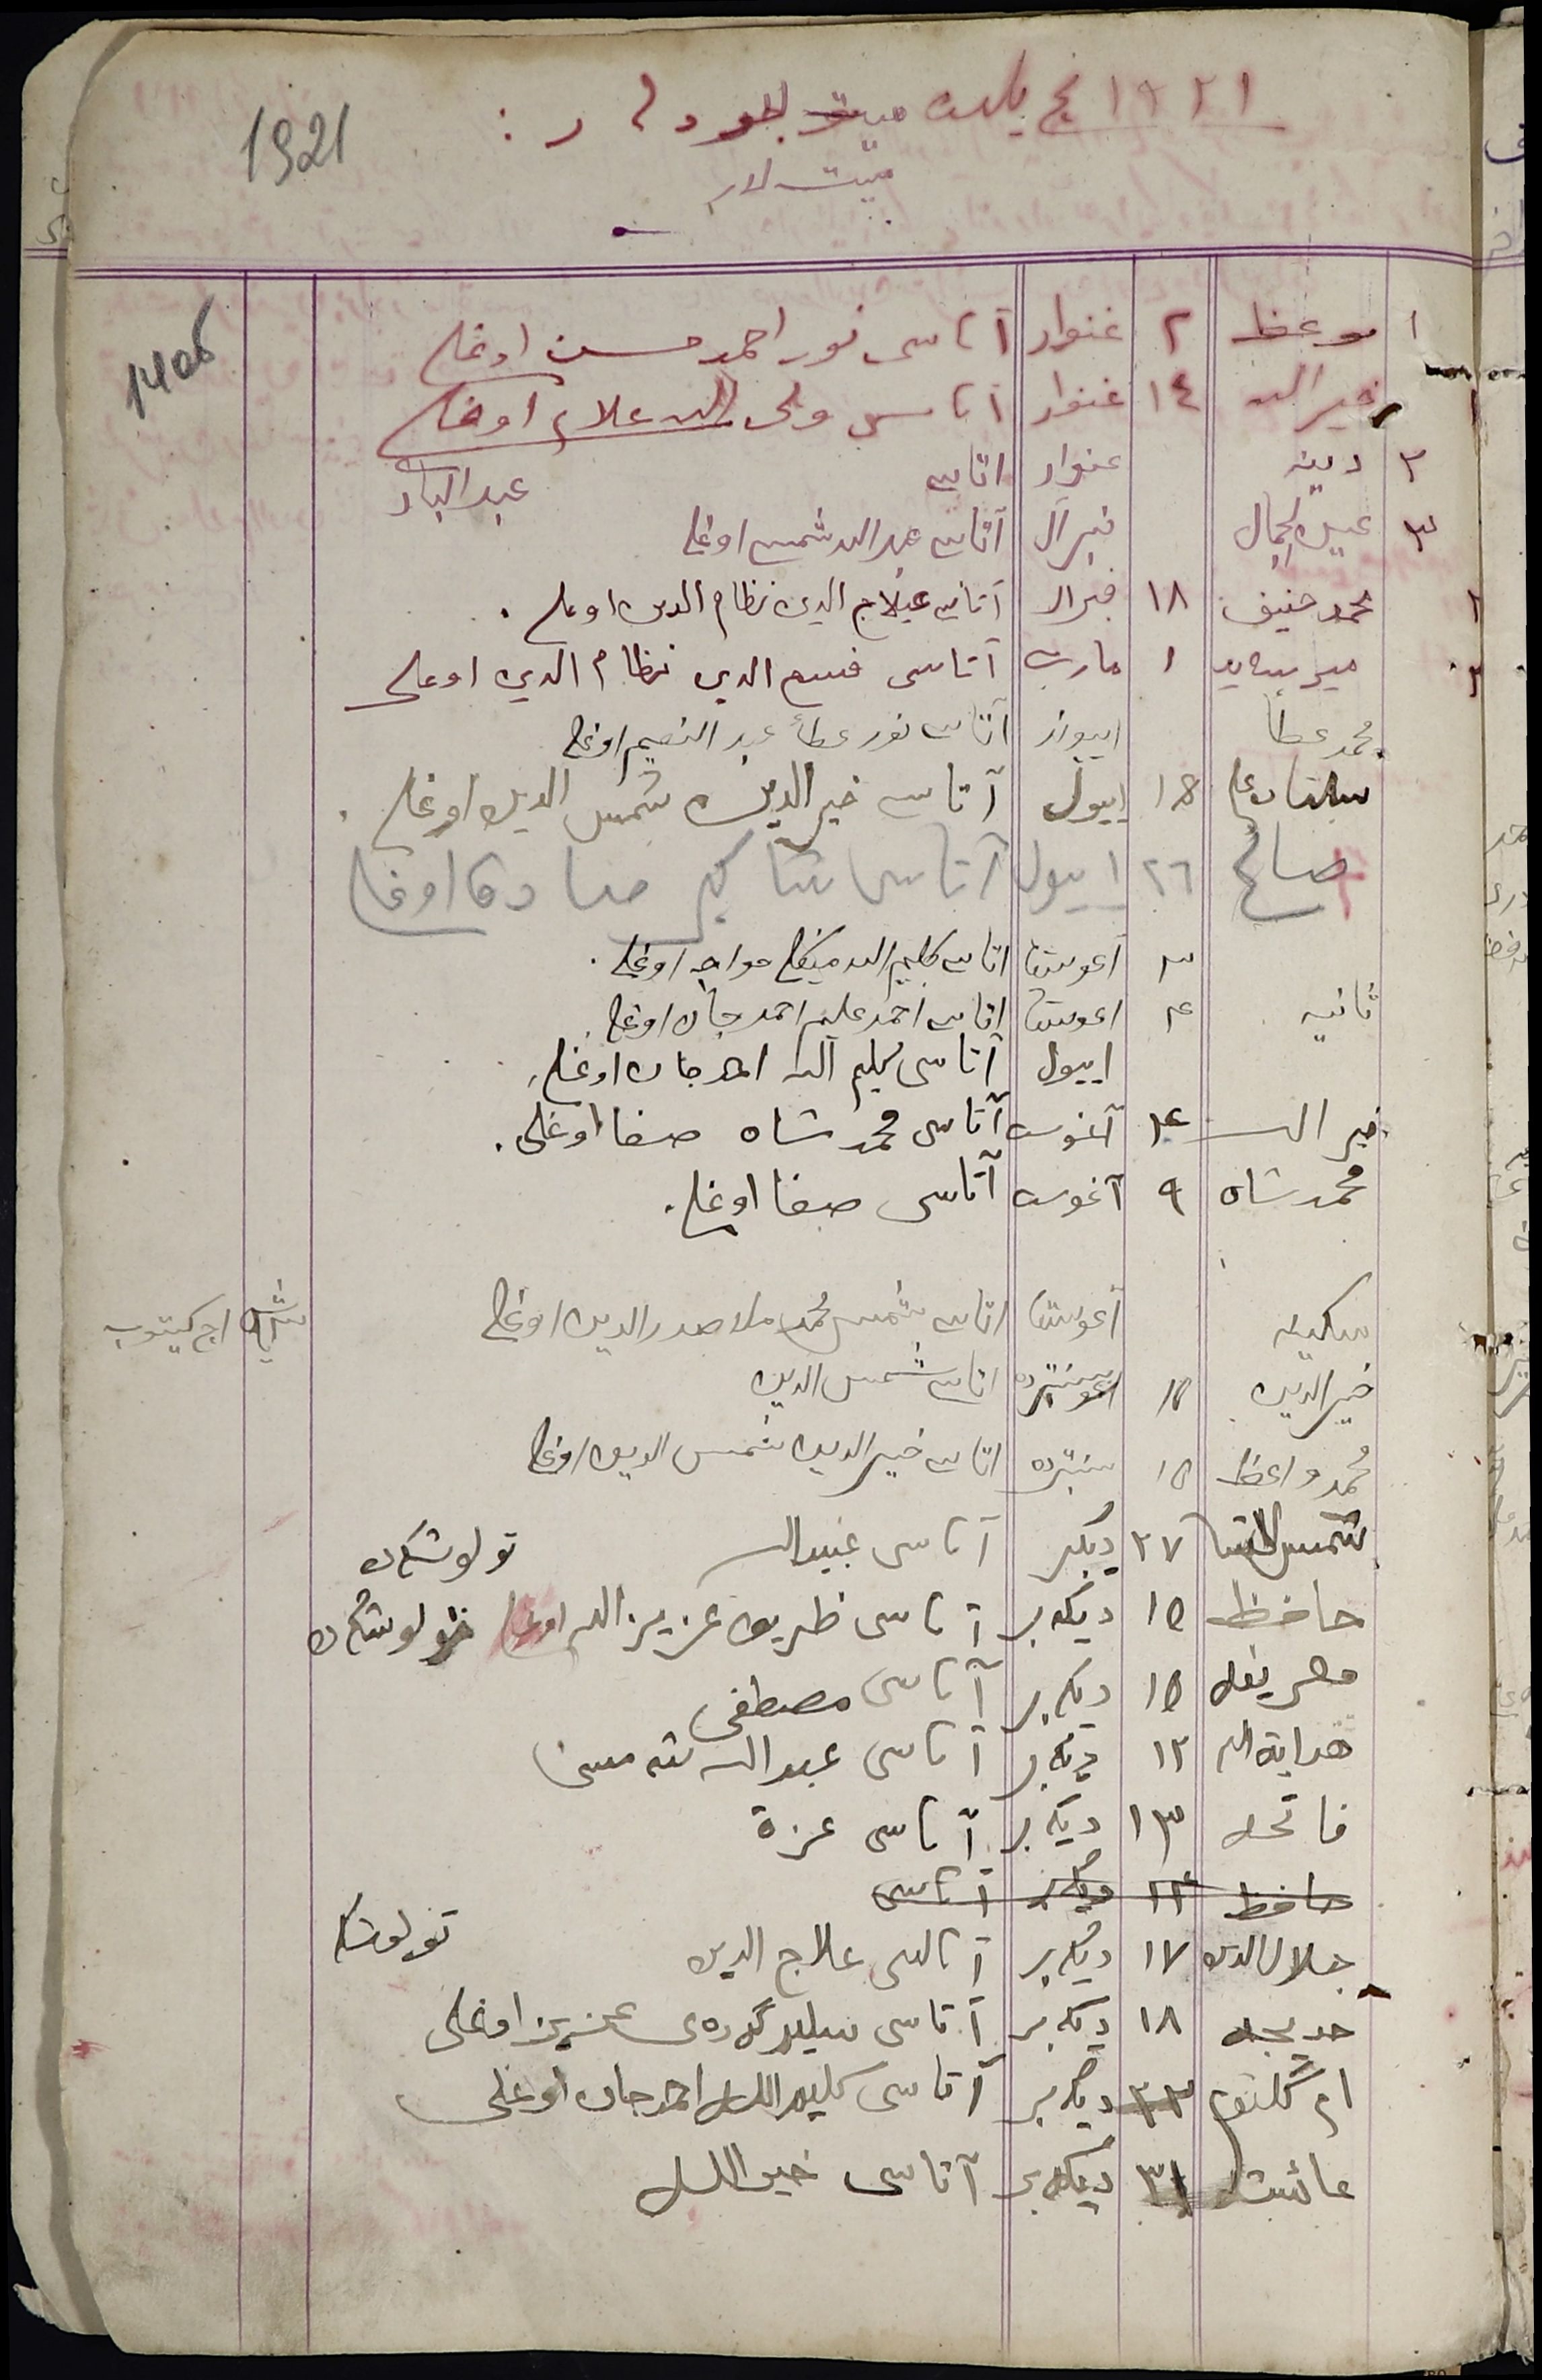 ١٩٢١ نچ یلده میت
1921
میت لار
١ موعظ ٢ غنوار آتاسی نور احمد حسن اوغلی
140б
١ خیر الله ١٤ غنوار آتاسی ولی الله علام اوغلی
٢ دینه عنوار اتاسی عبد البار
٣ عین الجمال فبرال آتاسی عبد الله شمس اوغلی
٢ محمد حنیف ١٨ فبرال آتاسی علاج الدین نظام الدین اوغلی.
٢ میر سعید ١ مارت آتاسی قسم الدین نظام الدین اوغلی
محمد عطا اییون آتاسی نور عطا عبد النعیم اوغلی
سلطان علی ١٥ اییول آتاسی خیر الدین شمس الدین اوغلی.
صالح ٢٦ اییول آتاسی شاکر صادق اوغلی
٣ آغوستا اتاسی کلیم الله خواجه اوغلی.
ثانیه ٤ اغوستا اتاسی احمد علیم احمد جان اوغلی.
اییول آتاسی کلیم الله احمد جان اوغلی.
خیر الله ١٤ آغوست آتاسی محمد شاه صفا اوغلی.
محمد شاه ٩ آغوست آتاسی صفا اوغلی.
سکینه آغوستا اتاسی شمس محمد ملا صدر الدین اوغلی اچ کیتوب
خیر الدین ١٥ اتاسی شمس الدین
محمد واعظ ١٥ سنتبرده اتاسی خیر الدین شمس الدین اوغلی
شمس النسا ٢٧ دیکبر آتاسی عبید الله تولوشکان
حافظ ١٥ دیکه بر آتاسی ظریف عزیز الله اوغلی تولوشکان
١٥ دیکه بر آتاسی مصطفی
هدایة الله ١٢ دیکه بر آتاسی عبد الله
فاتحه ١٣ دیکه بر آتاسی عزة
حافظ ١٤ دیکه بر آتاسی
جلال الدین ١٧ دیکه بر آتاسی علاج الدین تولوشکا
خدیجه ١٨ دیکه بر آتاسی عزیز اوغلی
ام کلثوم ٢٣ دیکه بر آتاسی کلیم الله احمد جان اوغلی
عائشه ٣١ دیکه بر آتاسی خیر الله